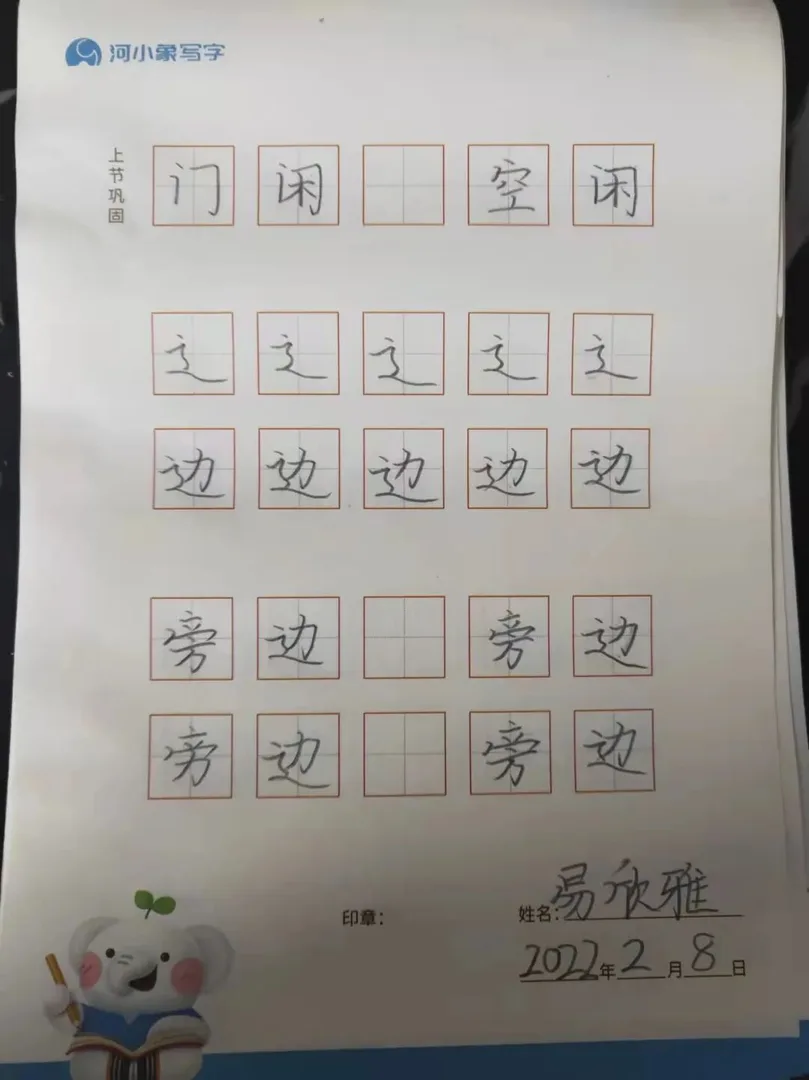 河小象写字
上节巩固
门闲 空闲
辶辶辶辶辶
边边边边边
旁边 旁边
旁边 旁边
印章: 姓名:易欣雅
2022年2月8日